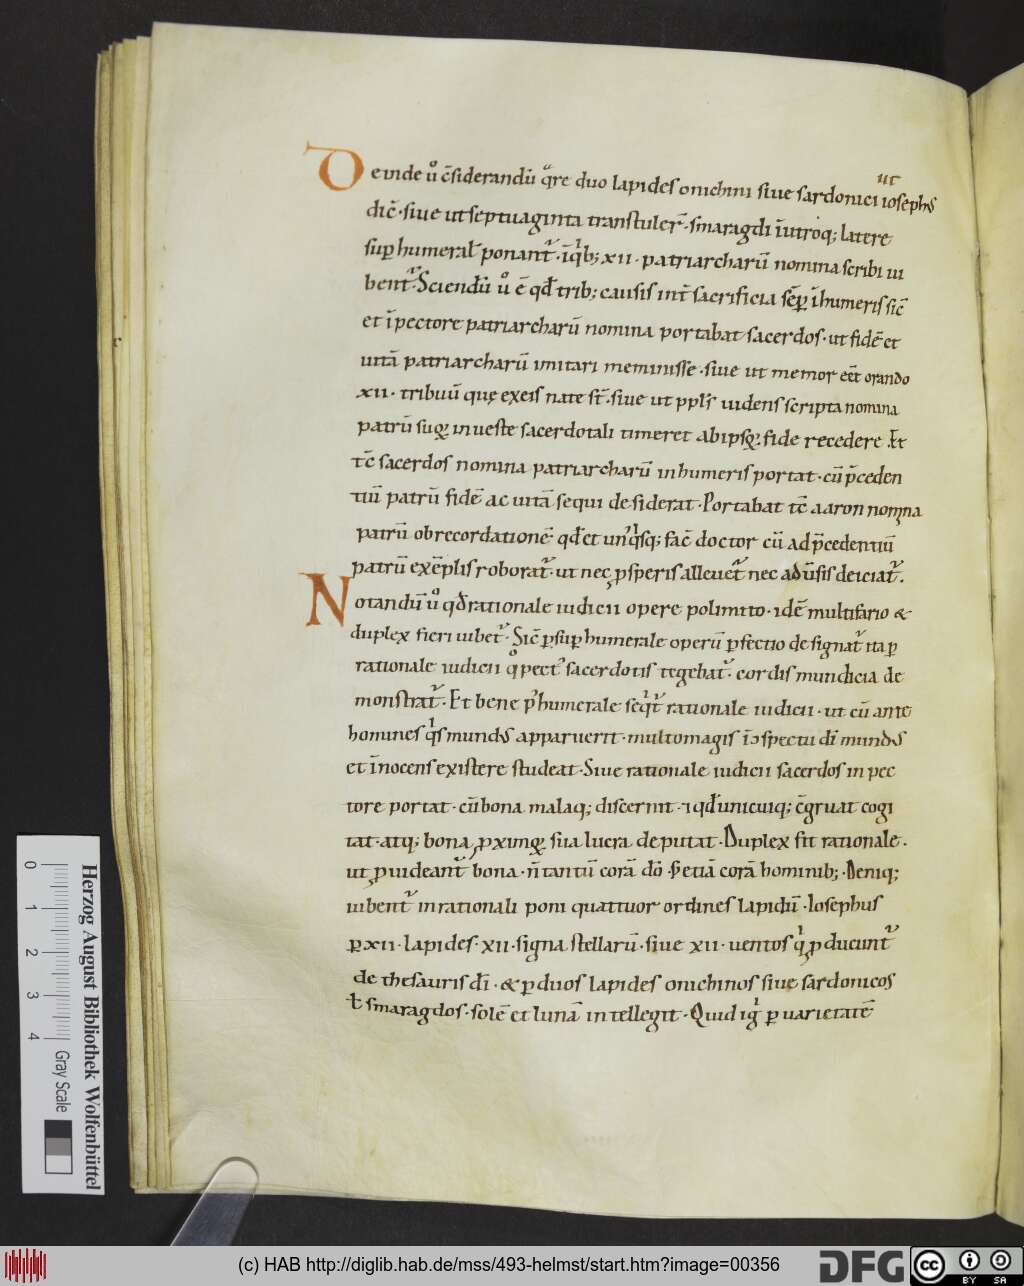 Deinde u͛ c̄siderandū q̈re duo lapides onichini siue sardonici ut iosephus
dic̄ · siue ut septuaginta transtuler̄ · smaragdi ī utroq; latere
sup humeral̄ ponant᷑ · ī qͥb; xii · patriarcharū nomina scribi iu
bent᷑ · Sciendū u͛ ē qd̄ trib; causis int̄ sacrificia sēp ī humeris sic̄
et ī pectore patriarcharū nomina portabat sacerdos · ut fidē et
uitā patriarcharū imitari meminisse · siue ut memor eēt orando
xii · tribuū quę ex eis nate st̄ · siue ut ppl̄s uidens scripta nomina
patrū suoꝝ in ueste sacerdotali timeret ab ipsoꝝ fide recedere Et
tc̄ sacerdos nomina patriarcharū in humeris portat · cū p̄ceden
tiū patrū fidē ac uitā sequi desiderat · Portabat tc̄ aaron nomina
patrū ob recordationē qd̄ et un̄qͥsq; fac̄ doctor cū ad p̄cedentiū
patrū exēplis roborat᷑ · ut nec ꝓsperis alleuet᷑ nec aduersis deiciat᷑ ·
Notandū u͛ qd̄ rationale iudicii opere polimito · idē multifario &
duplex fieri iubet᷑ · Sic̄ ꝑ suphumerale operū ꝑfectio designat᷑ ita ꝑ
rationale iudicii qͦ pect᷒ sacerdotis tegebat᷑ · cordis mundicia de
monstrat᷑ · Et bene p᷒ humerale seqͥt᷑ rationale iudicii · ut cū ante
homines qͥs mundus apparuerit · multo magis ī conspectu dī mundus
et īnocens existere studeat · Siue rationale iudicii sacerdos in pec
tore portat · cū bona malaq; discernit · ⁊ qd̄ unicuiq; c̄gruat cogi
tat · atq; bona ꝓximoꝝ sua lucra deputat · Duplex fit rationale ·
ut ꝓuideant᷑ bona · n̄ tantū corā dō · s; etiā corā hominib; · Deniq;
iubent᷑ in rationali poni quattuor ordines lapidū · Iosephus
ꝑ xii · lapides · xii · signa stellarū · siue xii · uentos qͥ ꝓducunt᷑
de thesauris dī · & ꝑ duos lapides onichinos siue sardonicos
ł smaragdos · solē et lunā intellegit · Quid igͥ ꝑ uarietatē
0 1 2 3 4
Herzog August Bibliothek Wolfenbüttel
Gray Scale
(c) HAB http://diglib.hab.de/mss/493-helmst/start.htm?image=00356
DFG
cc BY SA